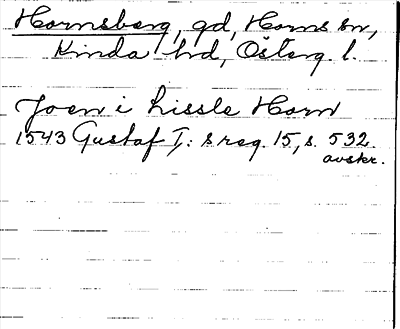 Hornsberg, gd, Horns sn,
Kinda hd, Österg. l.
Joen i Lissle Horn
1543 Gustaf I: s reg. 15, s. 532.
avskr.